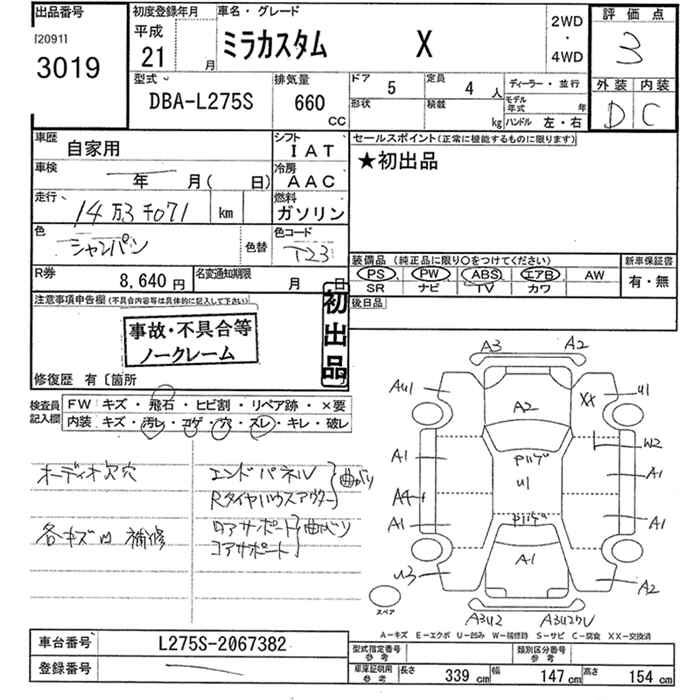 出品番号
[20911
3019
初度登録年月
平成
21 月
車名・グレード
ミラカスタム X
2WD
・
4WD
評価点
3
外装 内装
D C
型式
DBA-L275S
排気量
660
CC
ドア 5
定員 4 人
形状
積載 kg
ディーラー・並行
モデル年式 年
ハンドル 左・右
車歴
自家用
シフト
IAT
車検
年 月( 日)
冷房
AAC
走行
14万3千071 km
燃料
ガソリン
色
シャンパン
色替
色コード
T23
セールスポイント(正常に機能するものに限ります)
★初出品
装備品 (純正品に限り〇をつけてください)
PS PW ABS エアB AW
SR ナビ TV カワ
新車保証書
有・無
後日品
R券
8,640 円
名変通知期限
月 日
注意事項申告欄 (不具合内容等は具体的に記入して下さい)
事故・不具合等
ノークレーム
初出品
修復歴 有〔箇所
検査員
記入欄
FW キズ・飛石・ヒビ割・リペア跡・×要
内装 キズ・汚レ・コゲ・穴・スレ・キレ・破レ
オーディオ欠穴
各キズ凹 補修
エンドパネル
Rタイヤハウスアウター
曲がり
ロアサポート
コアサポート
曲がり
A3 A2
AU1 A2 XX U1
W2
A1 ﾅﾊｹﾞ A1
U1
A4
A1 ﾅﾊｹﾞ A1
A1
U3 A2
スペア
A3U2
A-キズ E-エクボ U-凹み W-補修跡 S-サビ C-腐食 XX-交換済
車台番号
L275S-2067382
登録番号
型式指定番号
参考
類別区分番号
参考
車庫証明用
参考
長さ 339 cm
幅 147 cm
高さ 154 cm